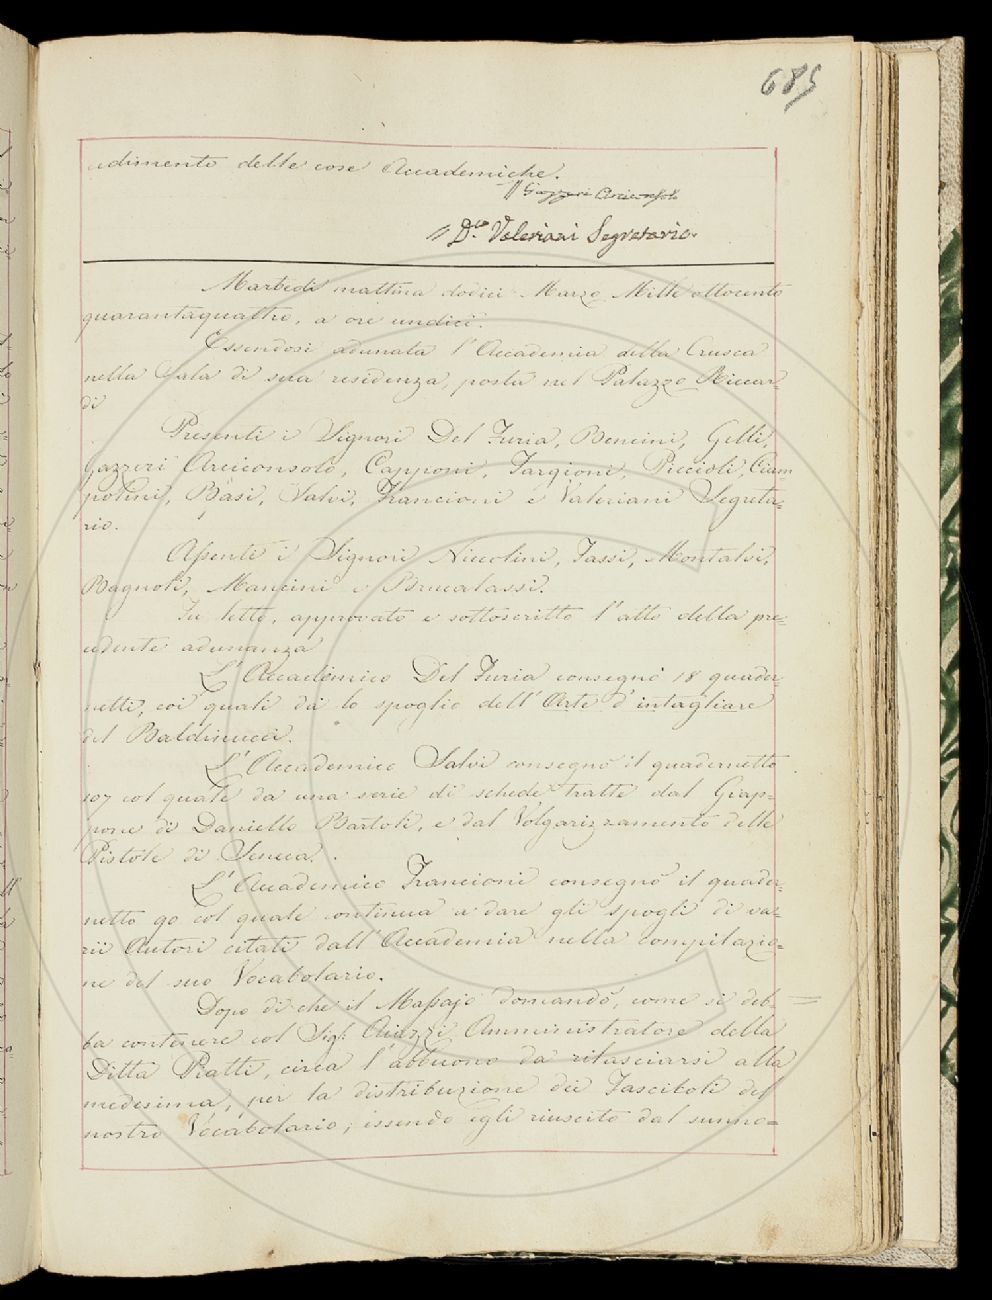 685
edimento delle cose Accademiche.
Gazzeri Arciconsolo
D.re Valeriani Segretario.
Martedì mattina dodici Marzo Mille ottocento
quarantaquattro, a ore undici.
Essendosi adunata l'Accademia della Crusca
nella Sala di sua residenza, posta nel Palazzo Riccar=
di
Presenti i Signori Del Furia, Bencini, Gelli,
Gazzeri Arciconsolo, Capponi, Targioni, Piccioli, Ciam
polini, Basi, Salvi, Francioni e Valeriani Segreta=
rio.
Assenti i Signori Niccolini, Tassi, Montalvi,
Bagnoli, Mancini e Brucalassi.
Fu letto, approvato e sottoscritto l'atto della pre=
cedente adunanza
L'Accademico Del Furia consegnò 18 quader=
netti, coi quali dà lo spoglio dell'Arte d'intagliare
del Baldinucci.
L'Accademico Salvi consegnò il quadernetto
107 col quale da una serie di schede tratte dal Giap=
pone di Daniello Bartoli, e dal Volgarizzamento delle
Pistole di Seneca.
L'Accademico Francioni consegnò il quader=
netto 90 col quale continua a dare gli spogli di va=
rii Autori citati dall'Accademia nella compilazio=
ne del suo Vocabolario.
Dopo di che il Massajo domandò, come si deb=
ba contenere col Sig.r Aiazzi Amministratore della
Ditta Piatti, circa l'abbuono da rilasciarsi alla
medesima, per la distribuzione dei Fascicoli del
nostro Vocabolario; essendo egli riuscito dal summo=